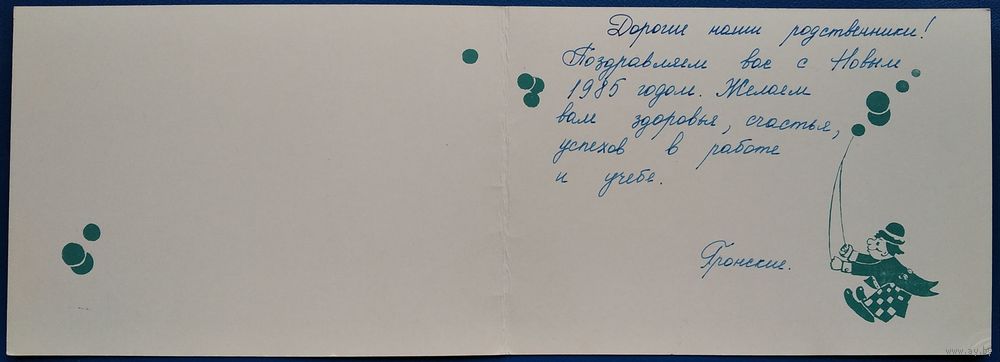 Дорогие наши родственники!
Поздравляем вас с Новым
1985 годом. Желаем
вам здоровья, счастья,
успехов в работе
и учебе.
Гронские.
www.ay.by